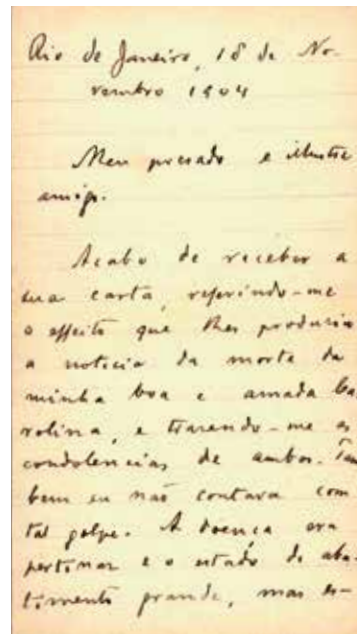 Rio de Janeiro, 18 de No-
vembro 1904
Meu presado e illustre
amigo.
Acabo de receber a
sua carta, referindo-me
o effeito que lhes produziu
a noticia da morte da
minha boa e amada Ca
rolina, e trazendo-me as
condolencias de ambos. Tam
bem eu não contava com
tal golpe. A doença era
pertinaz e o estado de aba-
timento grande, mas es-